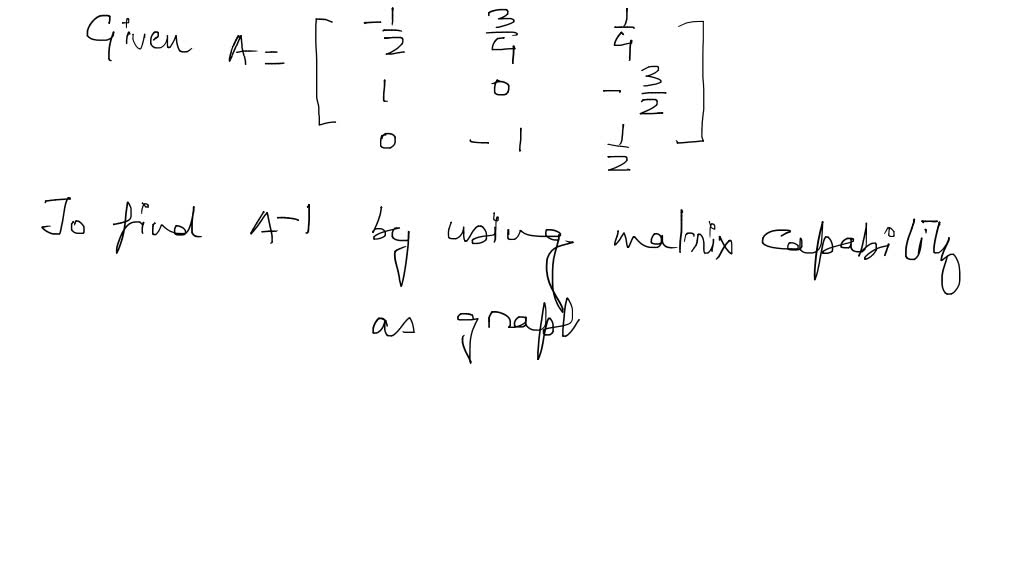 Given A = [ -1/2 3/4 1/4
1 0 - 3/2
0 - 1 1/2 ]
To find A-1 by using matrix capability
as graph